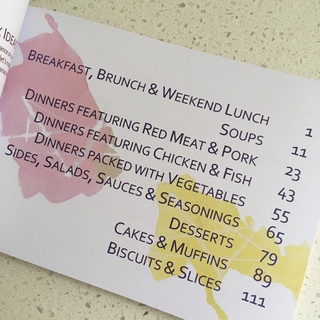 IDEA
BREAKFAST, BRUNCH & WEEKEND LUNCH 1
SOUPS 11
DINNERS FEATURING RED MEAT & PORK 23
DINNERS FEATURING CHICKEN & FISH 43
DINNERS PACKED WITH VEGETABLES 55
SIDES, SALADS, SAUCES & SEASONINGS 65
DESSERTS 79
CAKES & MUFFINS 89
BISCUITS & SLICES 111